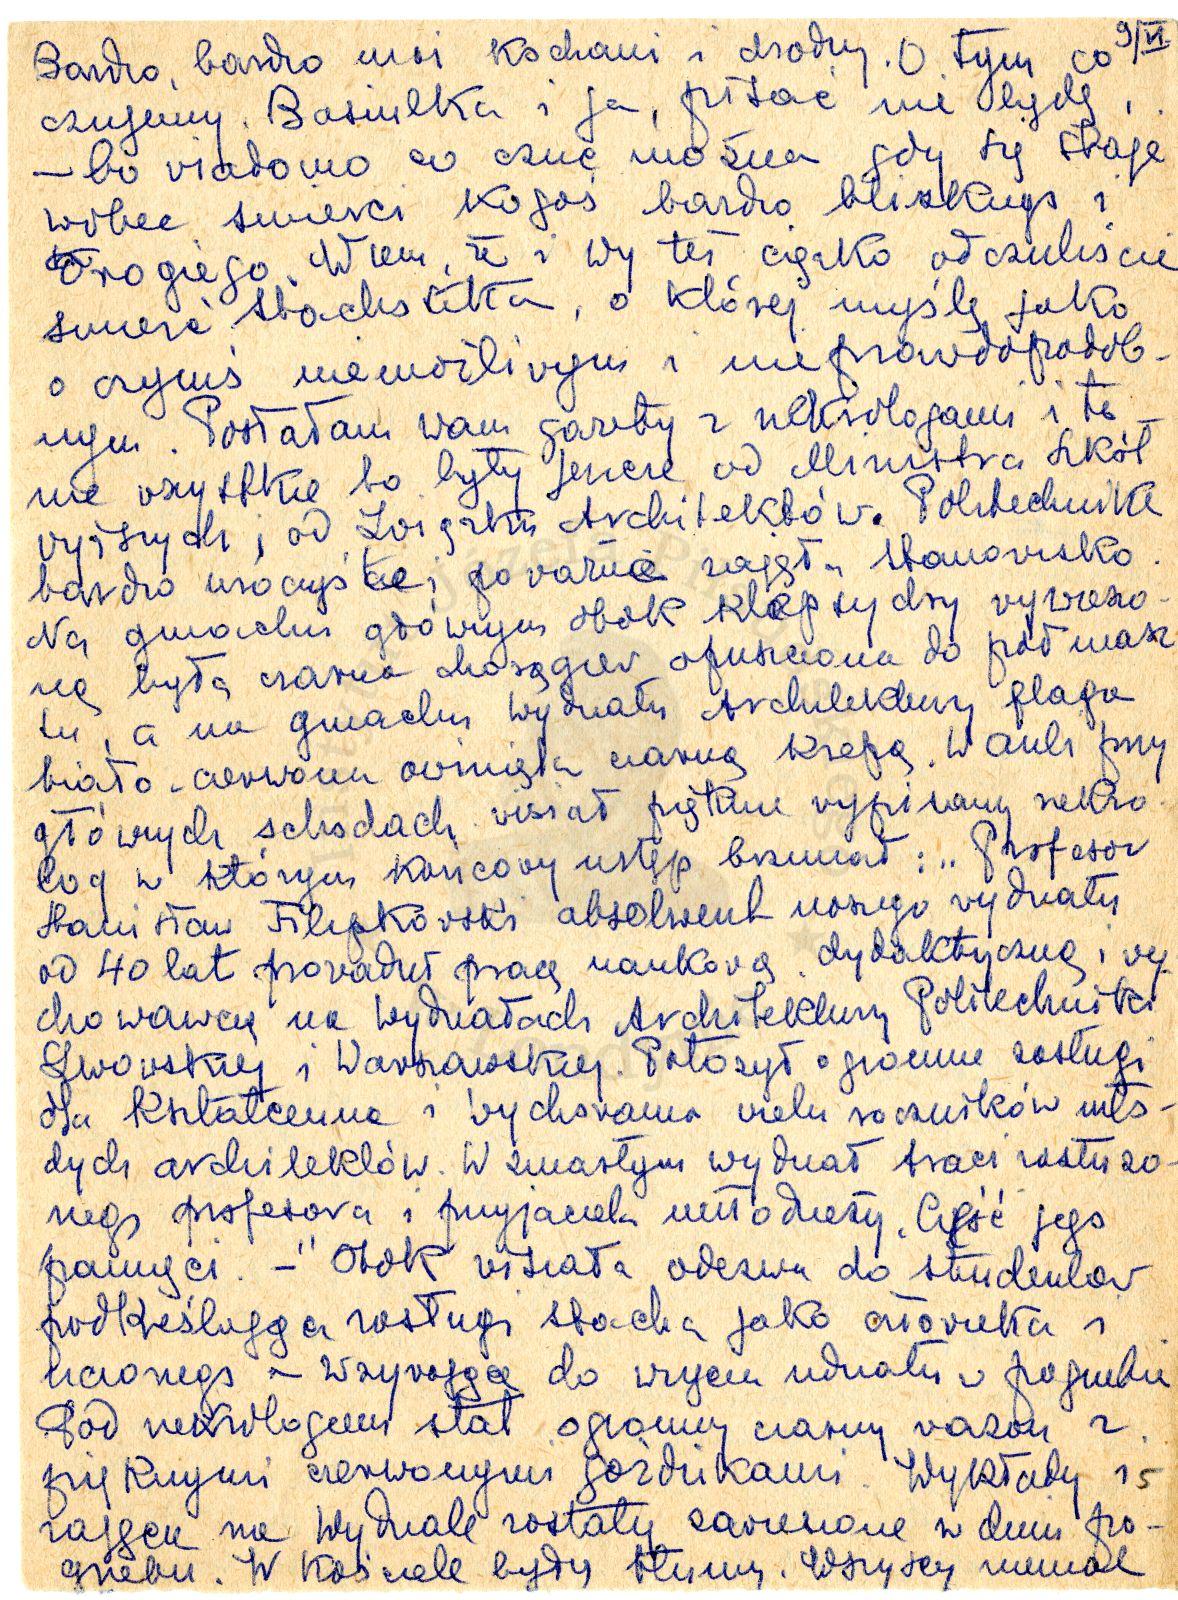 9/VI
Bardzo, bardzo moi Kochani i drodzy. O tym co
czujemy. Basiulka i ja, pisać nie będę,
– bo wiadomo co czuć można gdy się staje
wobec śmierci kogoś bardzo bliskiego i
drogiego. Wiem, że i Wy też ciężko odczuliście
śmierć Stacha, o której myślę jako
o czymś niemożliwym i nieprawdopodob-
nym. Posłałam wam gazety z nekrologami i to
nie wszystkie bo były jeszcze od Ministra Szkół
wyższych i od Związku Architektów. Politechnika
bardzo uroczyście i poważnie zajęła stanowisko.
Na gmachu głównym obok klepsydry wywieszo-
ną była czarna chorągiew opuszczona do pół masz-
tu, a na gmachu Wydziału Architektury flaga
biało-czerwona owinięta czarną krepą. W auli przy
głównych schodach wisiał pięknie wypisany nekro-
log w którym końcowy ustęp brzmiał: „Profesor
Stanisław Filipkowski absolwent naszego wydziału
od 40 lat prowadził pracę naukową, dydaktyczną i wy-
chowawczą na Wydziałach Architektury Politechniki
Lwowskiej i Warszawskiej. Położył ogromne zasługi
dla kształcenia i wychowania wielu roczników mło-
dych architektów. W zmarłym wydział traci zasłużo-
nego profesora i przyjaciela młodzieży. Cześć jego
pamięci. –" Obok wisiała odezwa do studentów
podkreślająca zasługi Stacha jako człowieka i
uczonego – Wzywając do wzięcia udziału w pogrzebie
Pod nekrologiem stał ogromny czarny wazon z
pięknymi czerwonymi goździkami. Wykłady i
zajęcia na Wydziale zostały zawieszone w dniu po-
grzebu. W Kościele były tłumy. Wszyscy niemal
5